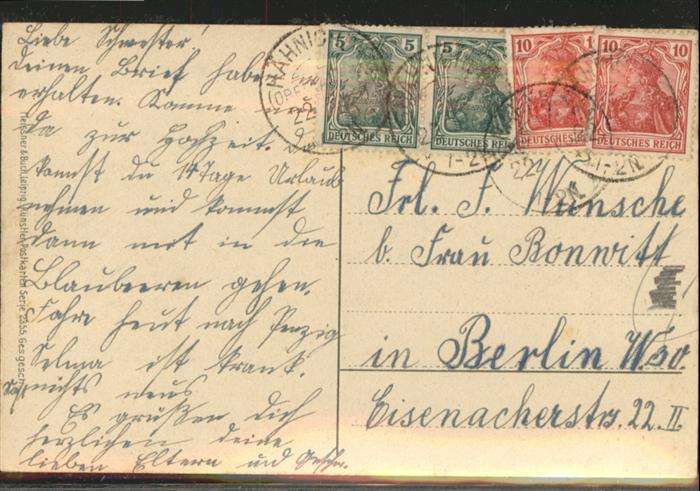 Liebe Schwester!
deinen Brief habe
erhalten. Komme
da zur Hochzeit. da
kannst du 14 Tage Urlaub
nehmen und kommst
dann mit in die
Blaubeeren gehen.
Fahre heut nach Penzig
Selma ist krank.
nichts neues
Es grüßen Dich
herzlichen deine
lieben Eltern und Geschw.
Meissner & Buch, Leipzig Künstler-Postkarten Serie 2355 Ges. gesch.
5 5
DEUTSCHES REICH
5
DEUTSCHES REICH
10 1
DEUTSCHES
10 10
DEUTSCHES REICH
HÄHNIC
22
1-2N
Frl. F. Wünsche
b. Frau Bonwitt
in Berlin W30
Eisenacherstr. 22. II.